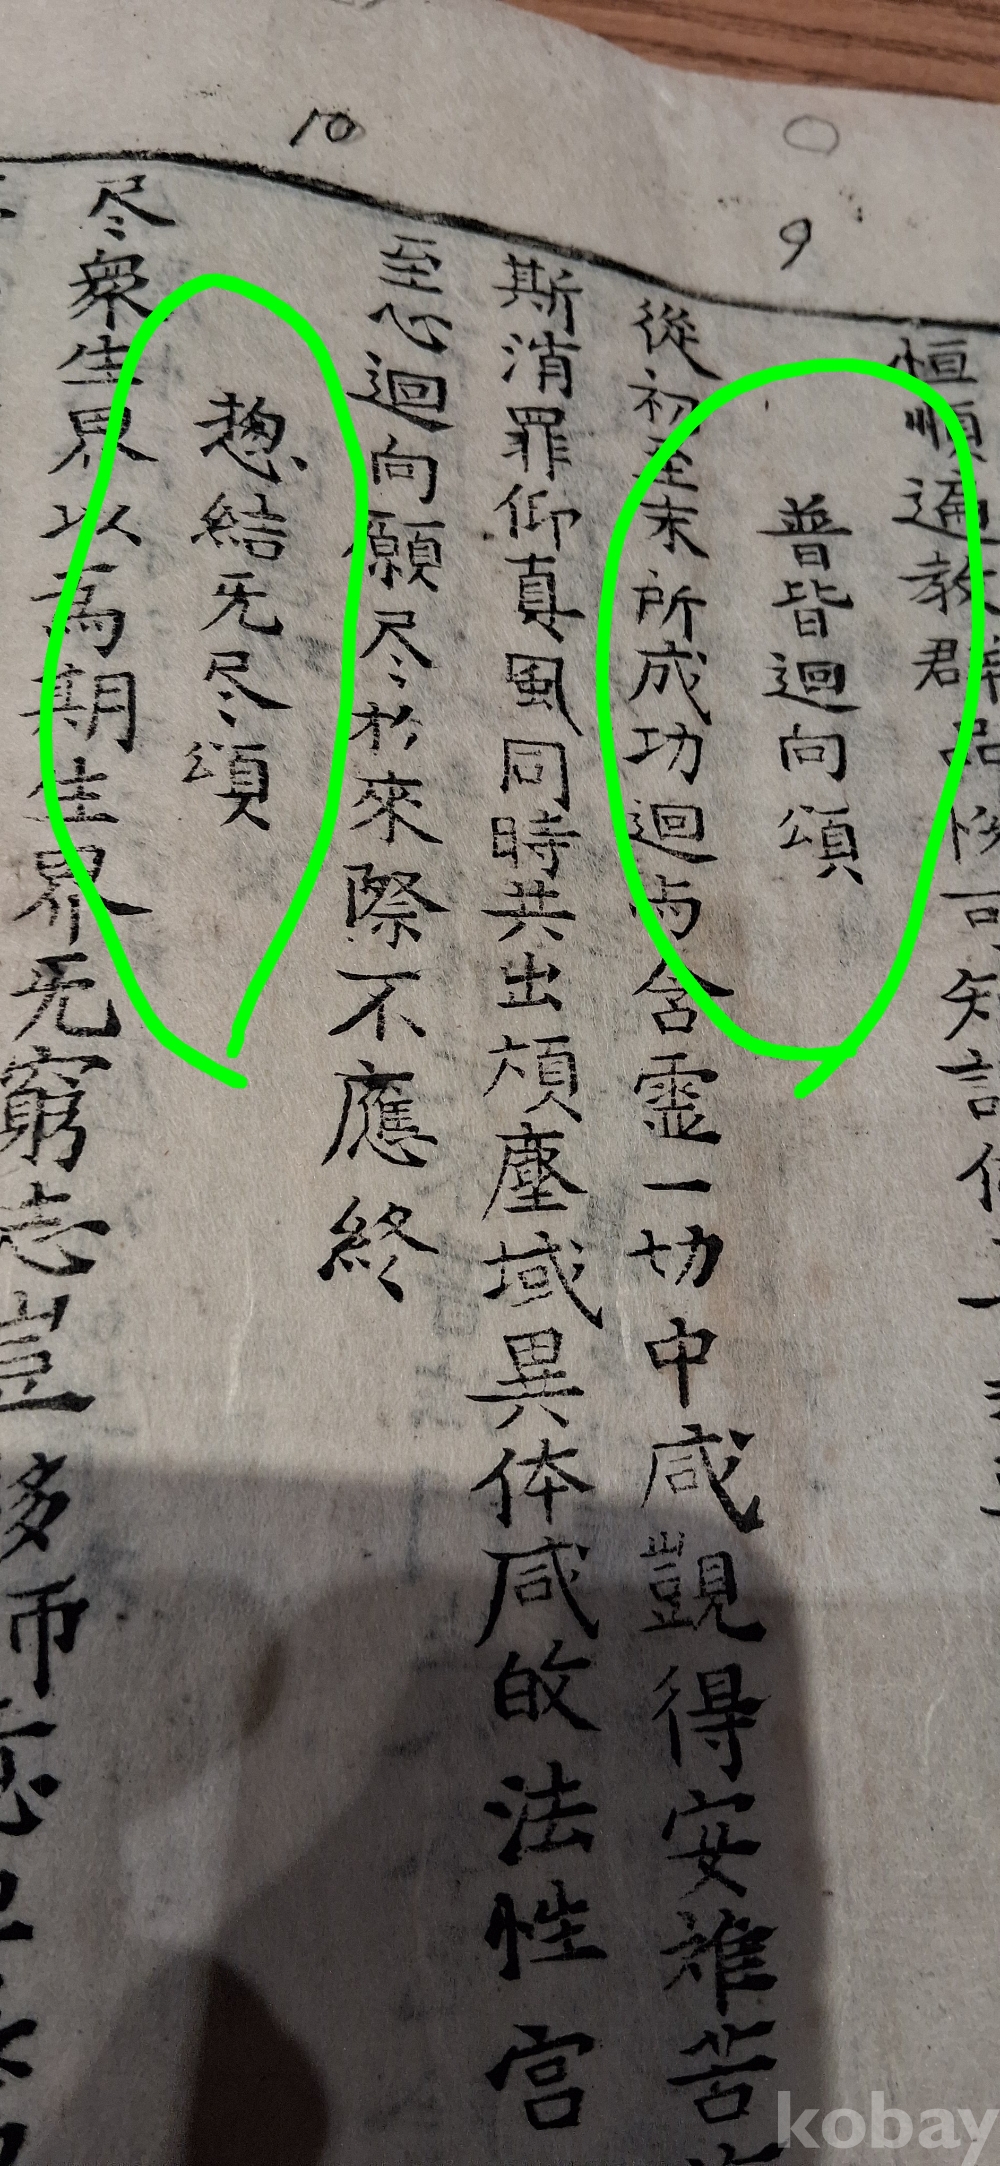 9
10
恒順遍敎群品悅可知
普皆迴向頌
從初至末所成功迴与含靈一切中咸覬得安離苦
斯消罪仰真風同時共出煩塵域異体咸皈法性宮
至心迴向願尽於來際不應終
惣結无尽頌
尽衆生界以爲期生界无窮志豈移師意
kobay